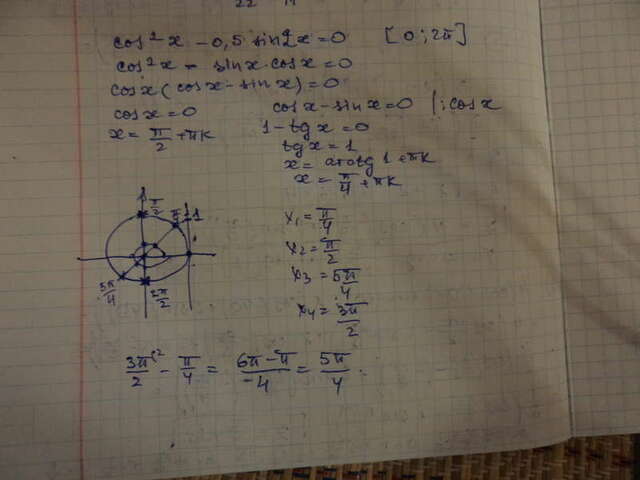 22
cos²x - 0,5 sin2x = 0 [0; 2π]
cos²x - sinx·cosx = 0
cosx(cosx - sinx) = 0
cosx = 0 cosx - sinx = 0 |: cosx
x = π/2 + πk 1 - tgx = 0
tgx = 1
x = arctg1 + πk
x = π/4 + πk
π/2 π/4 1
5π/4
x₁ = π/4
x₂ = π/2
x₃ = 5π/4
x₄ = 3π/2
3π/2 ⁽² - π/4 = 6π - π/-4 = 5π/4.